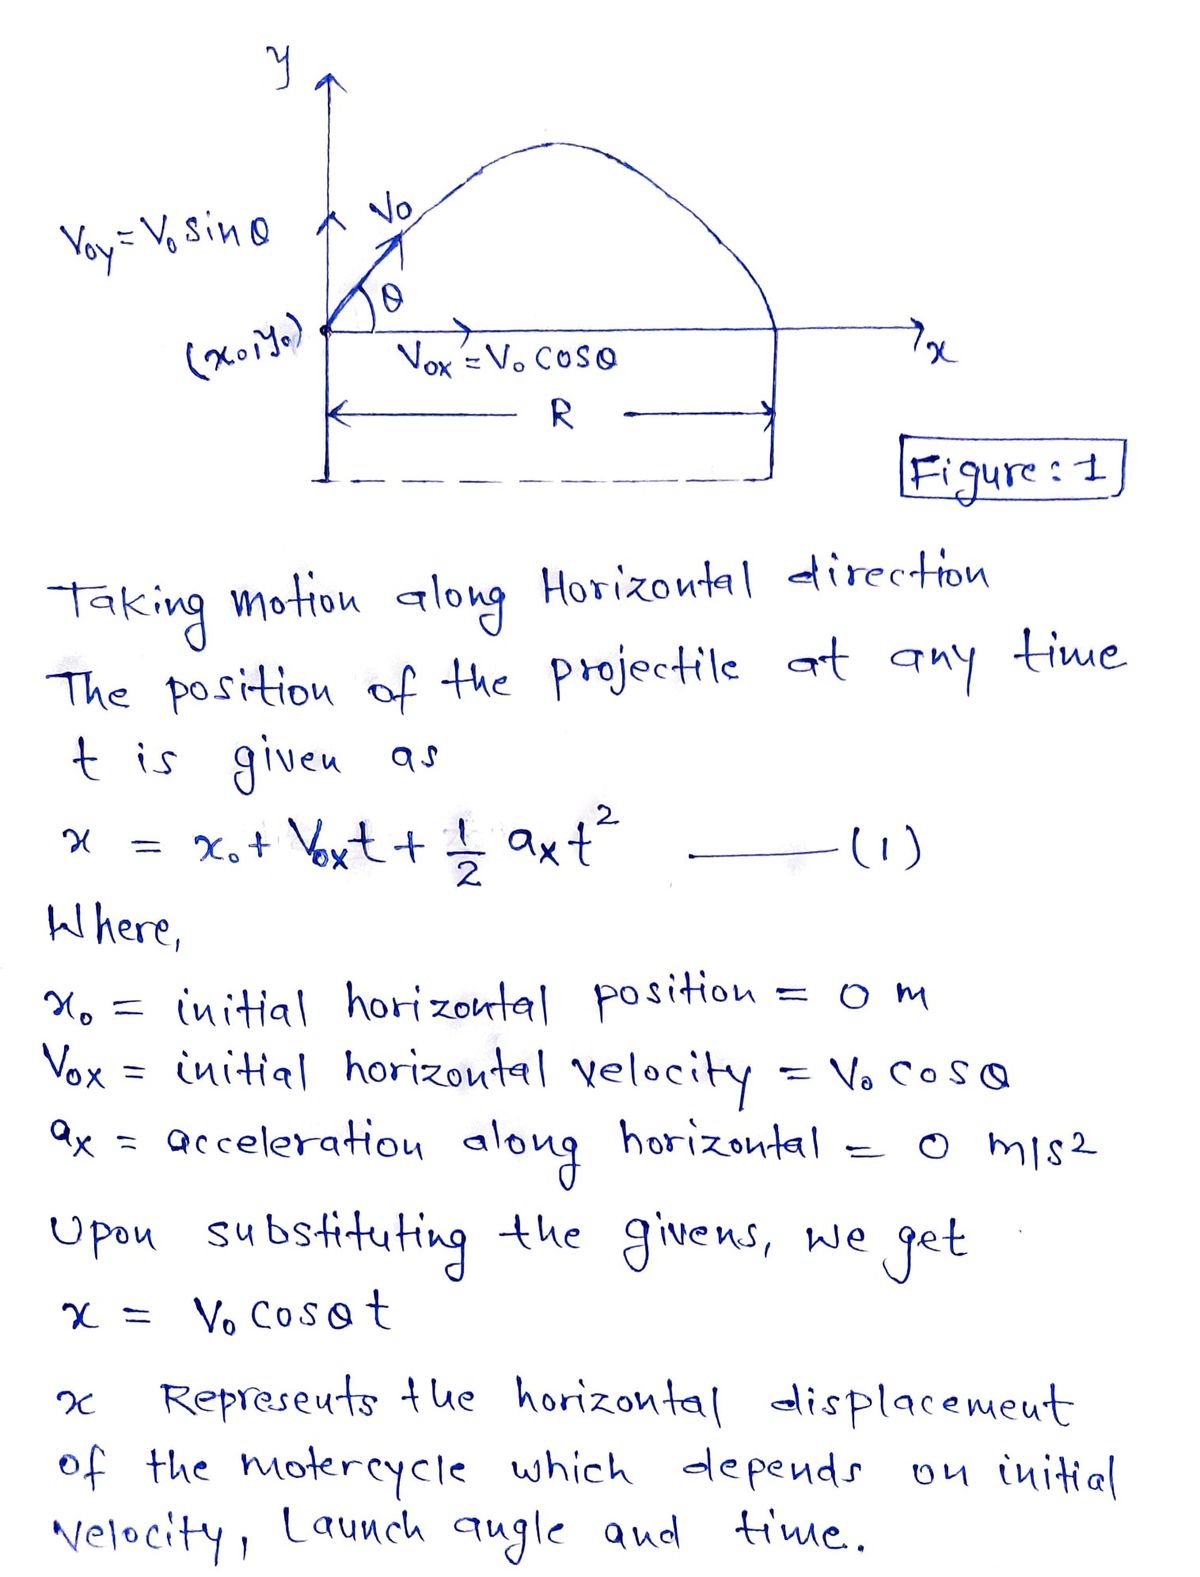 y
V₀
V₀y = V₀ sinθ
θ
(x₀, y₀)
V₀x = V₀ cosθ
x
R
Figure: 1
Taking motion along Horizontal direction
The position of the projectile at any time
t is given as
x = x₀ + V₀xt + 1/2 axt² ——(1)
Where,
x₀ = initial horizontal position = 0 m
V₀x = initial horizontal velocity = V₀ cosθ
ax = acceleration along horizontal = 0 m/s2
Upon substituting the givens, we get
x = V₀ cosθt
x Represents the horizontal displacement
of the motercycle which depends on initial
velocity, Launch angle and time.